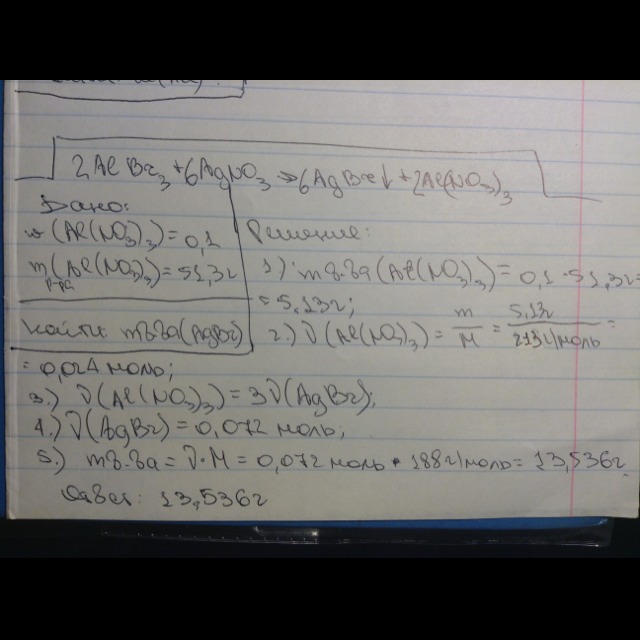 2AlBr₃+6AgNO₃→6AgBr↓+2Al(NO₃)₃
Дано:
w(Al(NO₃)₃)=0,1
m р-ра(Al(NO₃)₃)=51,3г
Найти: mв-ва(AgBr)
Решение:
1) mв-ва(Al(NO₃)₃)=0,1·51,3г=
=5,13г;
2.) ν(Al(NO₃)₃)=m/M=5,13г/213г/моль=
=0,024моль;
3.) ν(Al(NO₃)₃)=3ν(AgBr);
4.) ν(AgBr)=0,072 моль;
5.) mв-ва=ν·M=0,072моль·188г/моль=13,536г
Ответ: 13,536г